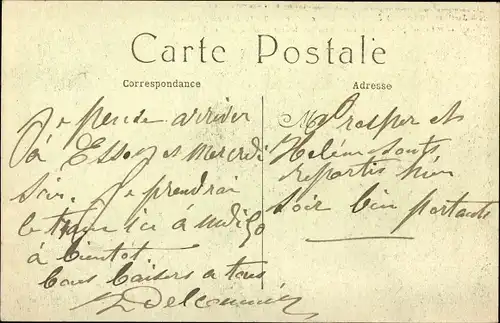 Carte Postale
Correspondance
Je pense arriver
à Essoyes mercredi
soir. Je prendrai
le train ici à midi 50
à bientôt
bons baisers a tous
Adresse
Prosper et
Helene sonts
repartis hier
soir bien portants